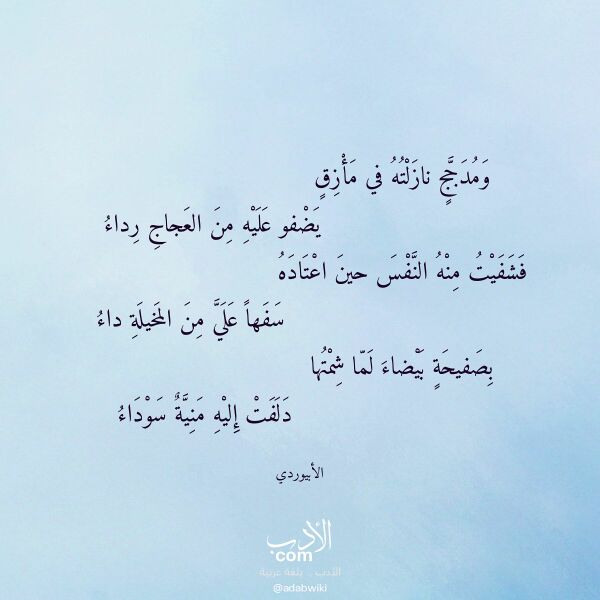 وَمُدَجَّجٍ نازَلْتُهُ في مَأْزِقٍ
يَضْفو عَلَيْهِ مِنَ العَجاجِ رِداءُ
فَشَفَيْتُ مِنْهُ النَّفْسَ حينَ اعْتَادَهُ
سَفَهاً عَلَيَّ مِنَ المَخيلَةِ داءُ
بِصَفيحَةٍ بَيْضاءَ لَمّا شِمْتُها
دَلَفَتْ إِليْهِ مَنِيَّةٌ سَوْدَاءُ
الأبيوردي
الأدب
com
الأدب .. بلغة عربية
@adabwiki